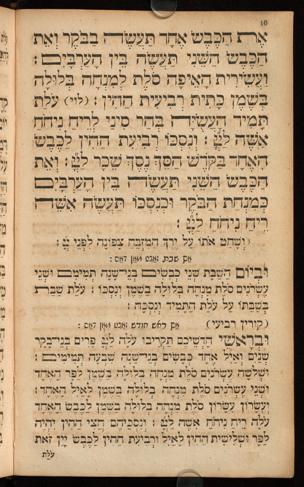 16
את הכבש אחד תעשה בבקר ואת
הכבש השני תעשה בין הערבים :
ועשירית האיפה סלת למנחה בלולה
בשמן כתית רביעית ההין : (לוי) עלת
תמיד העשויה בהר סיני לריח ניחח
אשה לה׳ : ונסכו רביעית ההין לכבש
האחד בקדש הסך נסך שכר לה׳ : ואת
הכבש השני תעשה בין הערבים
כמנחת הבקר וכנסכו תעשה אשה
ריח ניחח לה׳ :
ושחט אתו על ירך המזבח צפונה לפני ה׳ :
אם שבת זאגט מאן דאס :
וביום השבת שני כבשים בני שנה תמימם ושני
עשרנים סלת מנחה בלולה בשמן ונסכו : עלת שבת
בשבתו על עלת התמיד ונסכה :
(קורין רביעי) אם ראש חודש זאגט מאן דאס :
ובראשי חדשיכם תקריבו עלה לה׳ פרים בני בקר
שנים ואיל אחד כבשים בני שנה שבעה תמימם :
ושלשה עשרנים סלת מנחה בלולה בשמן לפר האחד
ושני עשרנים סלת מנחה בלולה בשמן לאיל האחד :
ועשרון עשרון סלת מנחה בלולה בשמן לכבש האחד
עלה ריח ניחח אשה לה׳ : ונסכיהם חצי ההין יהיה
לפר ושלישית ההין לאיל ורביעת ההין לכבש יין זאת
עלת